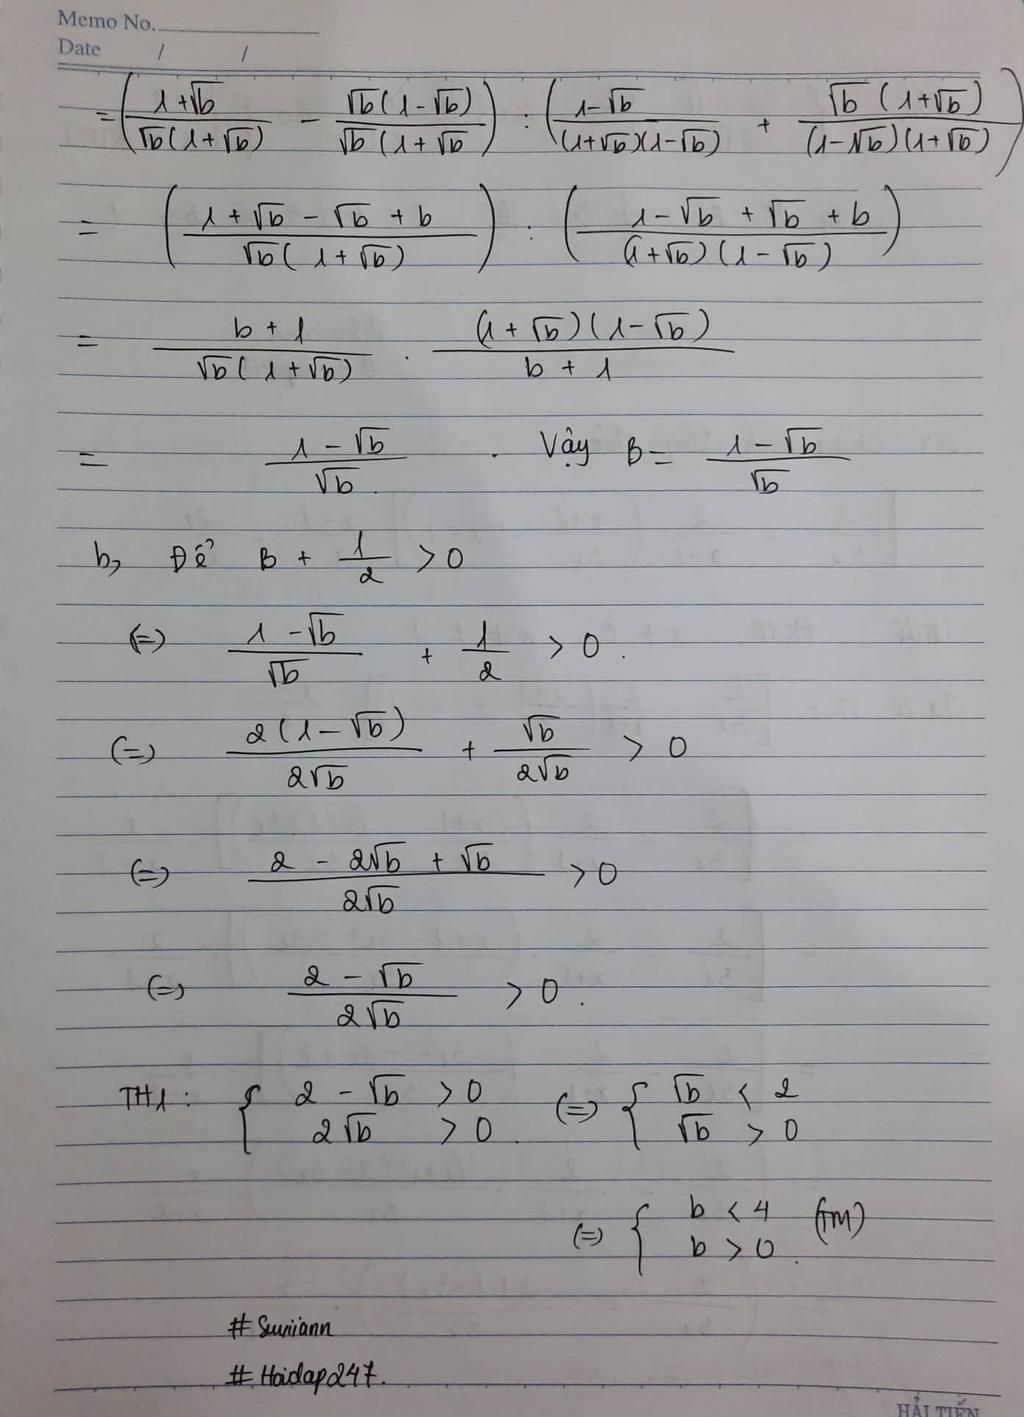 Memo No.
Date / /
= ( (1+√b)/(√b(1+√b)) − (√b(1−√b))/(√b(1+√b) ) : ( (1−√b)/((1+√b)(1−√b)) + (√b(1+√b))/((1−√b)(1+√b)) )
= ( (1+√b−√b+b)/(√b(1+√b)) ) : ( (1−√b+√b+b)/((1+√b)(1−√b)) )
= (b+1)/(√b(1+√b)) . ((1+√b)(1−√b))/(b+1)
= (1−√b)/√b . Vậy B = (1−√b)/√b
b, Để B + 1/2 > 0
(=) (1−√b)/√b + 1/2 > 0.
(=) (2(1−√b))/(2√b) + √b/(2√b) > 0
(=) (2−2√b+√b)/(2√b) > 0
(=) (2−√b)/(2√b) > 0.
TH1: { 2−√b > 0 (=) { √b < 2
2√b > 0. √b > 0
(=) { b < 4 (TM)
b > 0.
# Suniann
# Hoidap247.
HẢI TIẾN